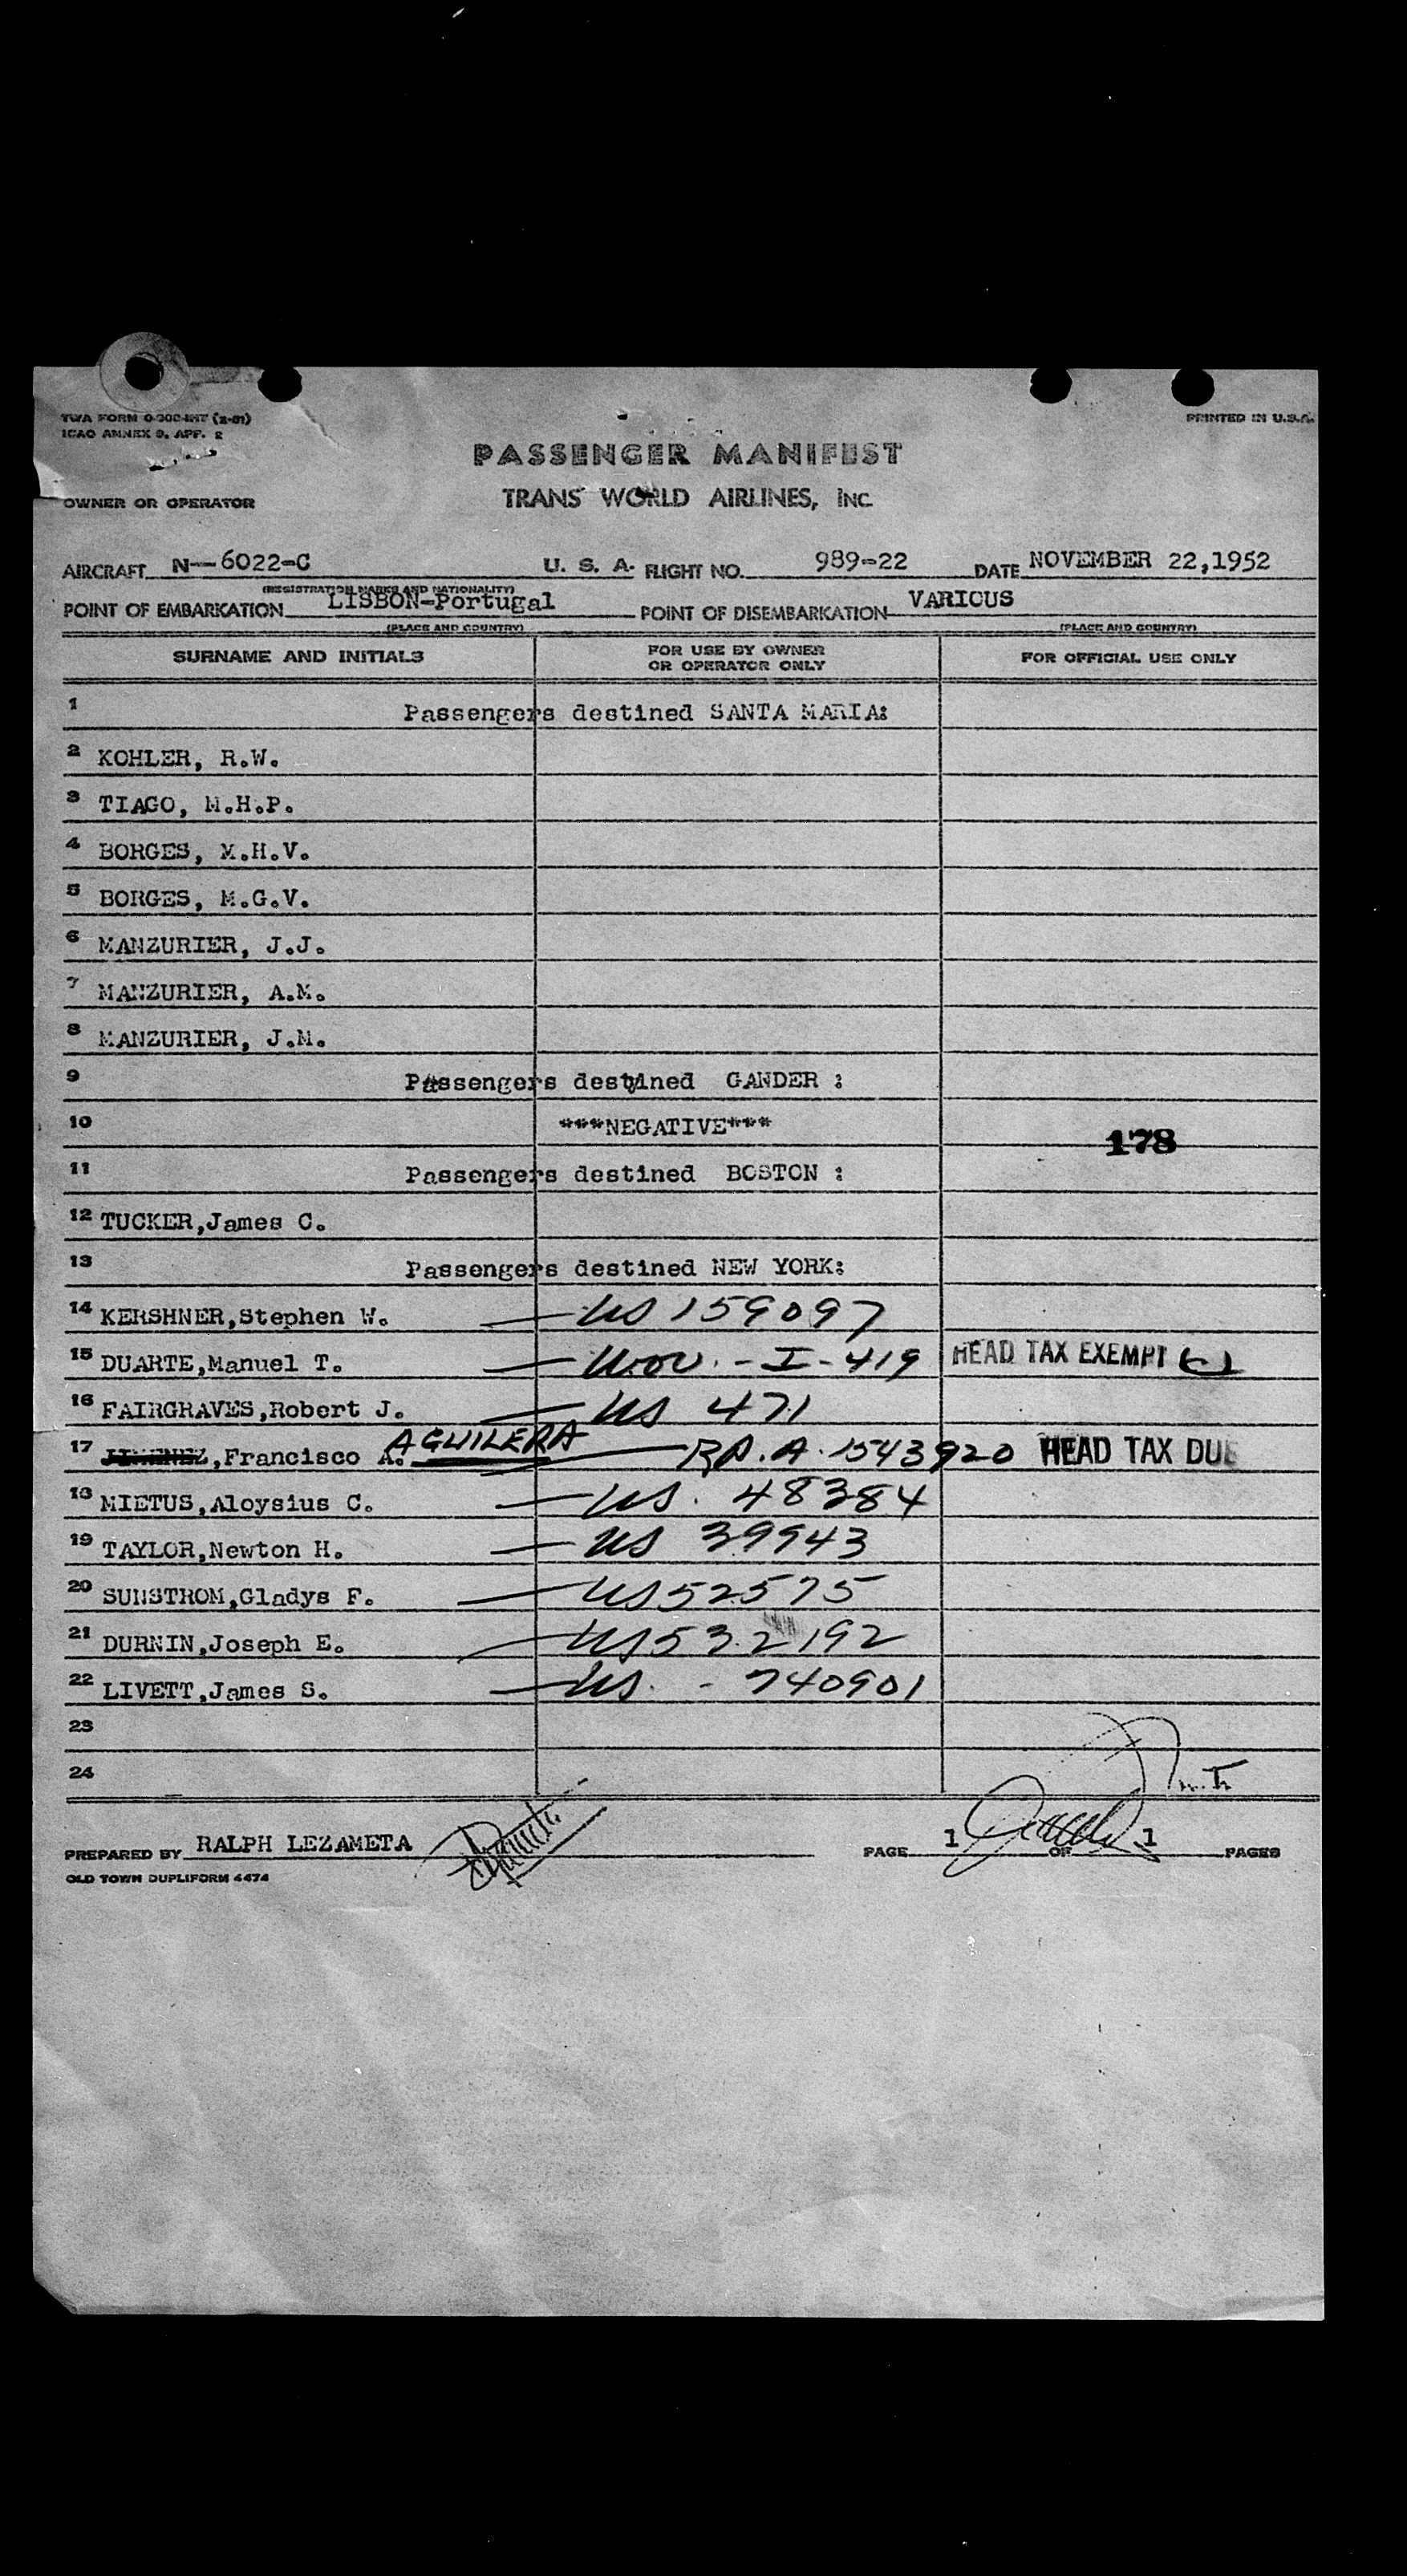 TWA FORM O-300-INT (2-51) PRINTED IN U.S.A.
ICAO ANNEX 9, APP. 2
PASSENGER MANIFEST
OWNER OR OPERATOR TRANS WORLD AIRLINES, INC.
AIRCRAFT N--6022-C U. S. A. FLIGHT NO. 989-22 DATE NOVEMBER 22,1952
(REGISTRATION MARKS AND NATIONALITY)
POINT OF EMBARKATION LISBON-Portugal POINT OF DISEMBARKATION VARIOUS
(PLACE AND COUNTRY) (PLACE AND COUNTRY)
SURNAME AND INITIALS FOR USE BY OWNER OR OPERATOR ONLY FOR OFFICIAL USE ONLY
1 Passengers destined SANTA MARIA:
2 KOHLER, R.W.
3 TIAGO, M.H.P.
4 BORGES, M.H.V.
5 BORGES, M.G.V.
6 MANZURIER, J.J.
7 MANZURIER, A.M.
8 MANZURIER, J.M.
9 Passengers destined GANDER :
10 ***NEGATIVE*** 178
11 Passengers destined BOSTON :
12 TUCKER,James C.
13 Passengers destined NEW YORK:
14 KERSHNER,Stephen W. — US 159097
15 DUARTE,Manuel T. — - I - 419 HEAD TAX EXEMPT
16 FAIRGRAVES,Robert J. — US 471
17 JIMENEZ,Francisco A. AGUILERA — RP. A. 1543920 HEAD TAX DUE
18 MIETUS,Aloysius C. — US. 48384
19 TAYLOR,Newton H. — US 39943
20 SUNSTROM,Gladys F. — US 52575
21 DURNIN,Joseph E. — US 532192
22 LIVETT,James S. — US. - 740901
23
24
PREPARED BY RALPH LEZAMETA PAGE 1 OF 1 PAGES
OLD TOWN DUPLIFORM 4474